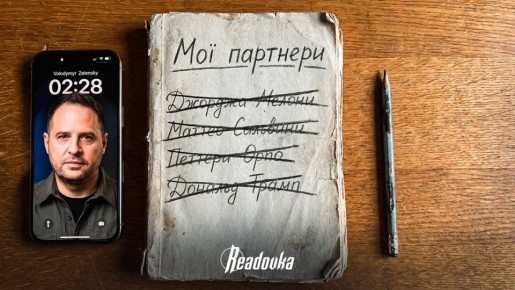 Volodymyr Zelensky
02:28
Мої партнери
Джорджа Мелони
Маттео Салвини
Петтери Орпо
Дональд Трамп
Readovka